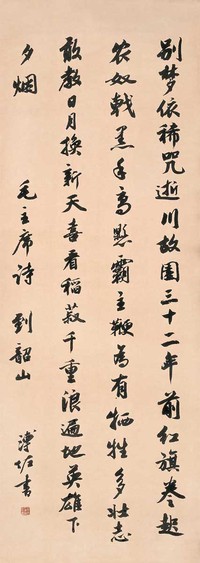 别梦依稀咒逝川故园三十二年前红旗卷起
农奴戟黑手高悬霸主鞭為有牺牲多壮志
敢教日月换新天喜看稻菽千重浪遍地英雄下
夕烟 毛主席诗 到韶山 溥佐书